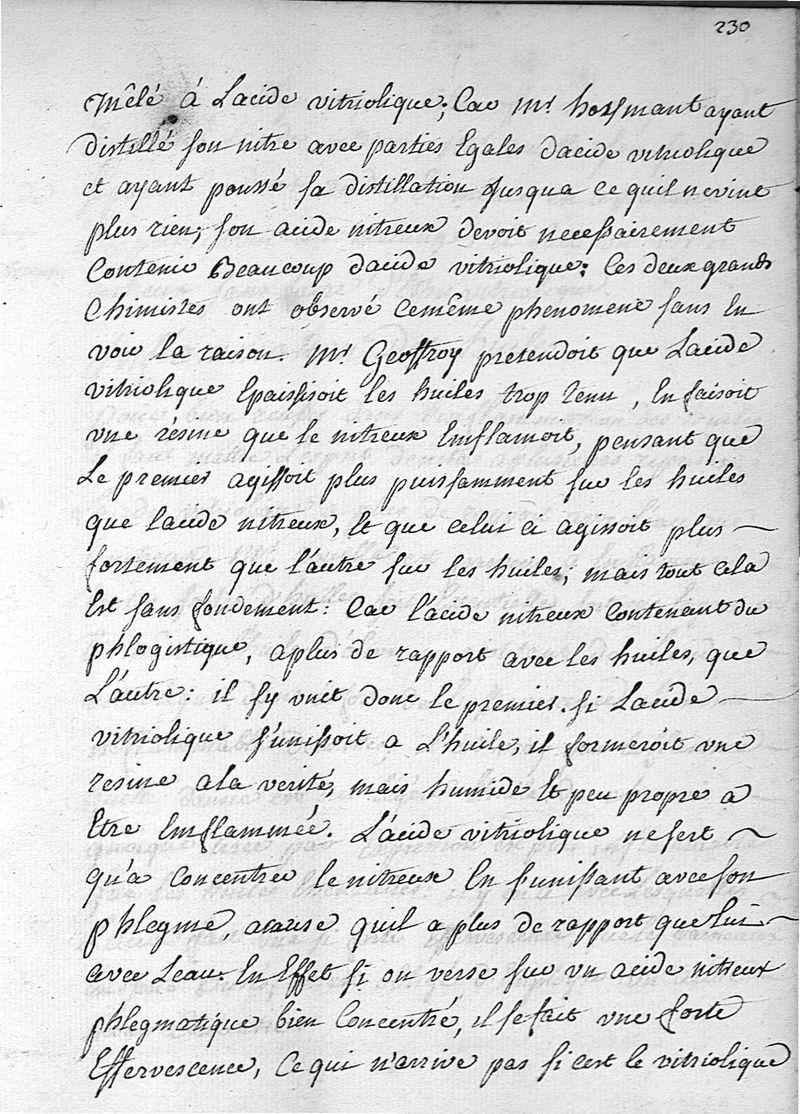 230
mêlé á Lacide vitriolique; Car mr. hoffmant ayant
distillé son nitre avec parties Egales dacide vitriolique
et ayant poussé sa distillation Jusqua ce quil nevint
plus rien, son acide nitreux devoit necessairement
Contenir Beaucoup dacide vitriolique: Ces deux grands
Chimistes ont observé cemême phenomene sans En
voir la raison. Mr. Geoffroy pretendoit que Lacide
vitriolique Epaississoit les huiles trop tenu, En faisoit
vne résine que le nitreux Emflamoit, pensant que
Le premier agissoit plus puissamment sur les huiles
que lacide nitreux, Et que celui ci agissoit plus
fortement que l'autre sur les huiles; mais tout cela
Est sans fondement: Car l'acide nitreux contenant du
phlogistique, aplus de rapport avec les huiles, que
L'autre: il sy vnit donc le premier. si Lacide
vitriolique s'unissoit a L'huile, il formeroit vne
resine ala verité, mais humide Et peu propre a
Etre Emflammée. L'acide vitriolique nesert
qu'a concentrer le nitreux En s'unissant avec son
phlegme, acause quil a plus de rapport que lui
avec Leau. En Effet si on verse sur vn acide nitreux
phlegmatique bien Concentré, il se fait vne forte
Effervescence, Ce qui n'arrive pas si cest le vitriolique